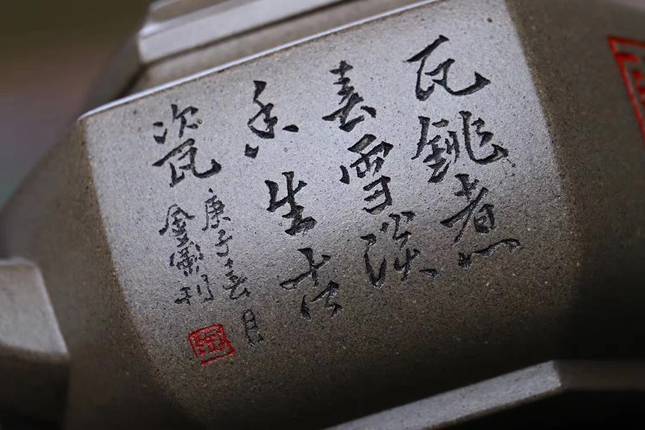 瓦銚煮
春雪淡
香生古
瓷
庚子春月
金